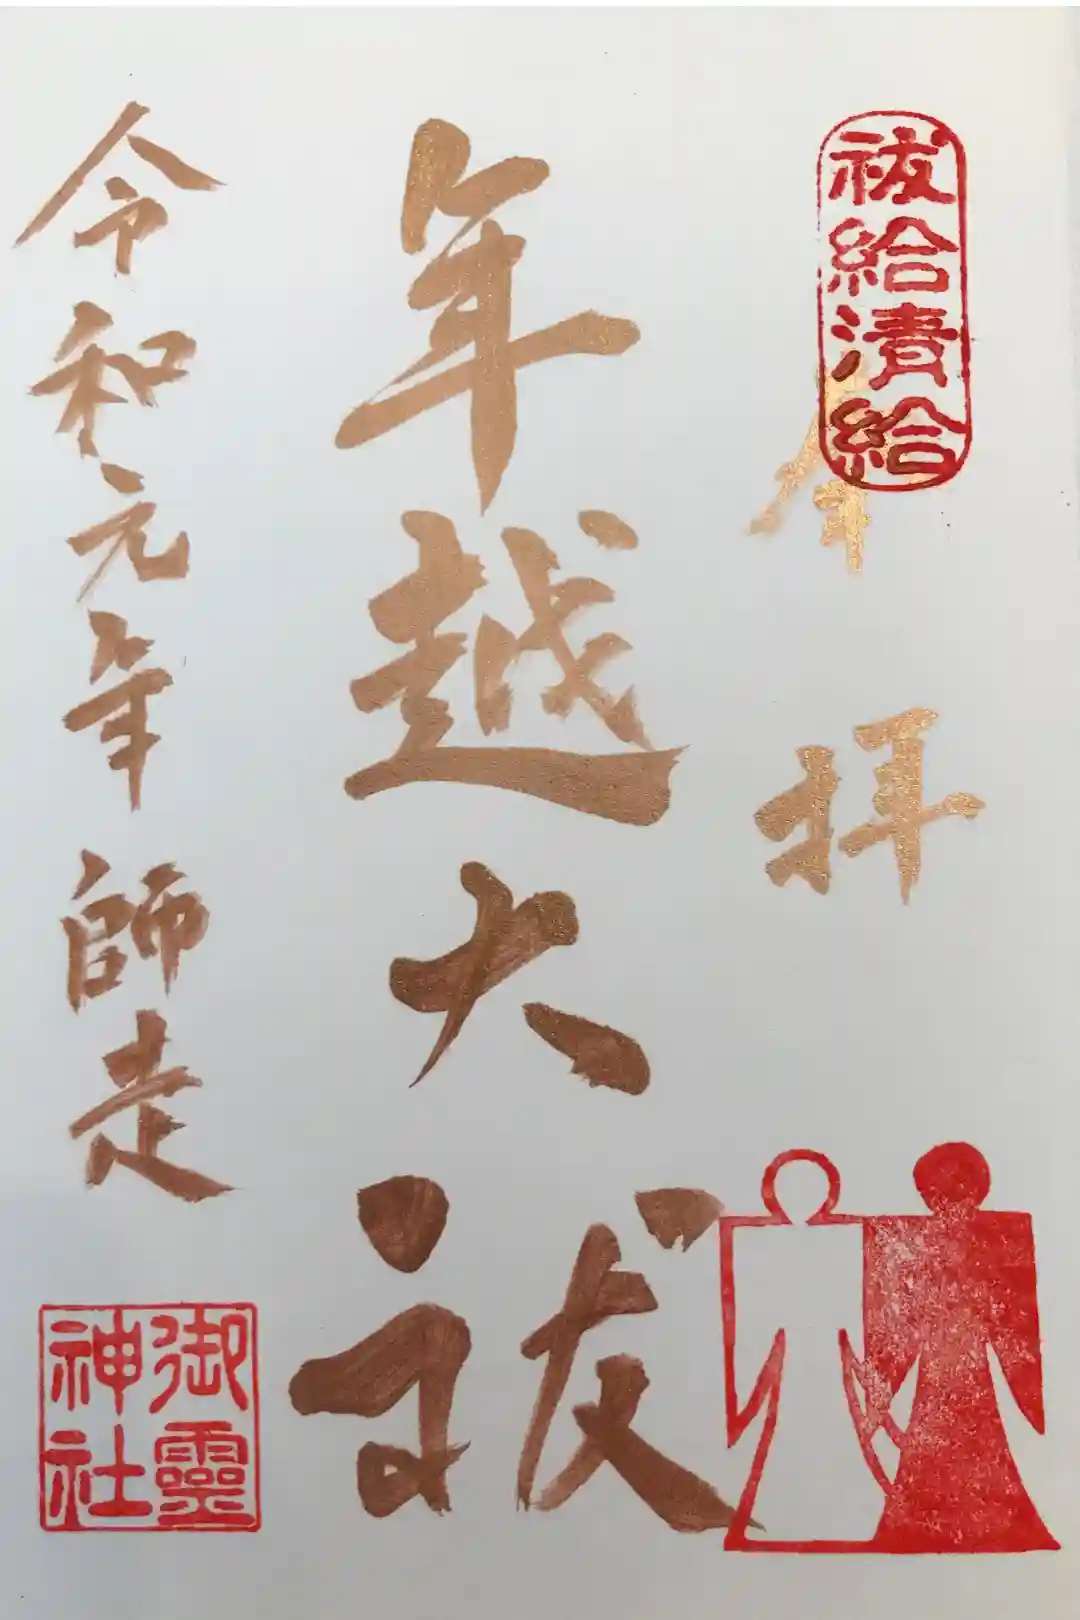 祓給清給
奉拝
年越大祓
令和元年 師走
御靈
神社